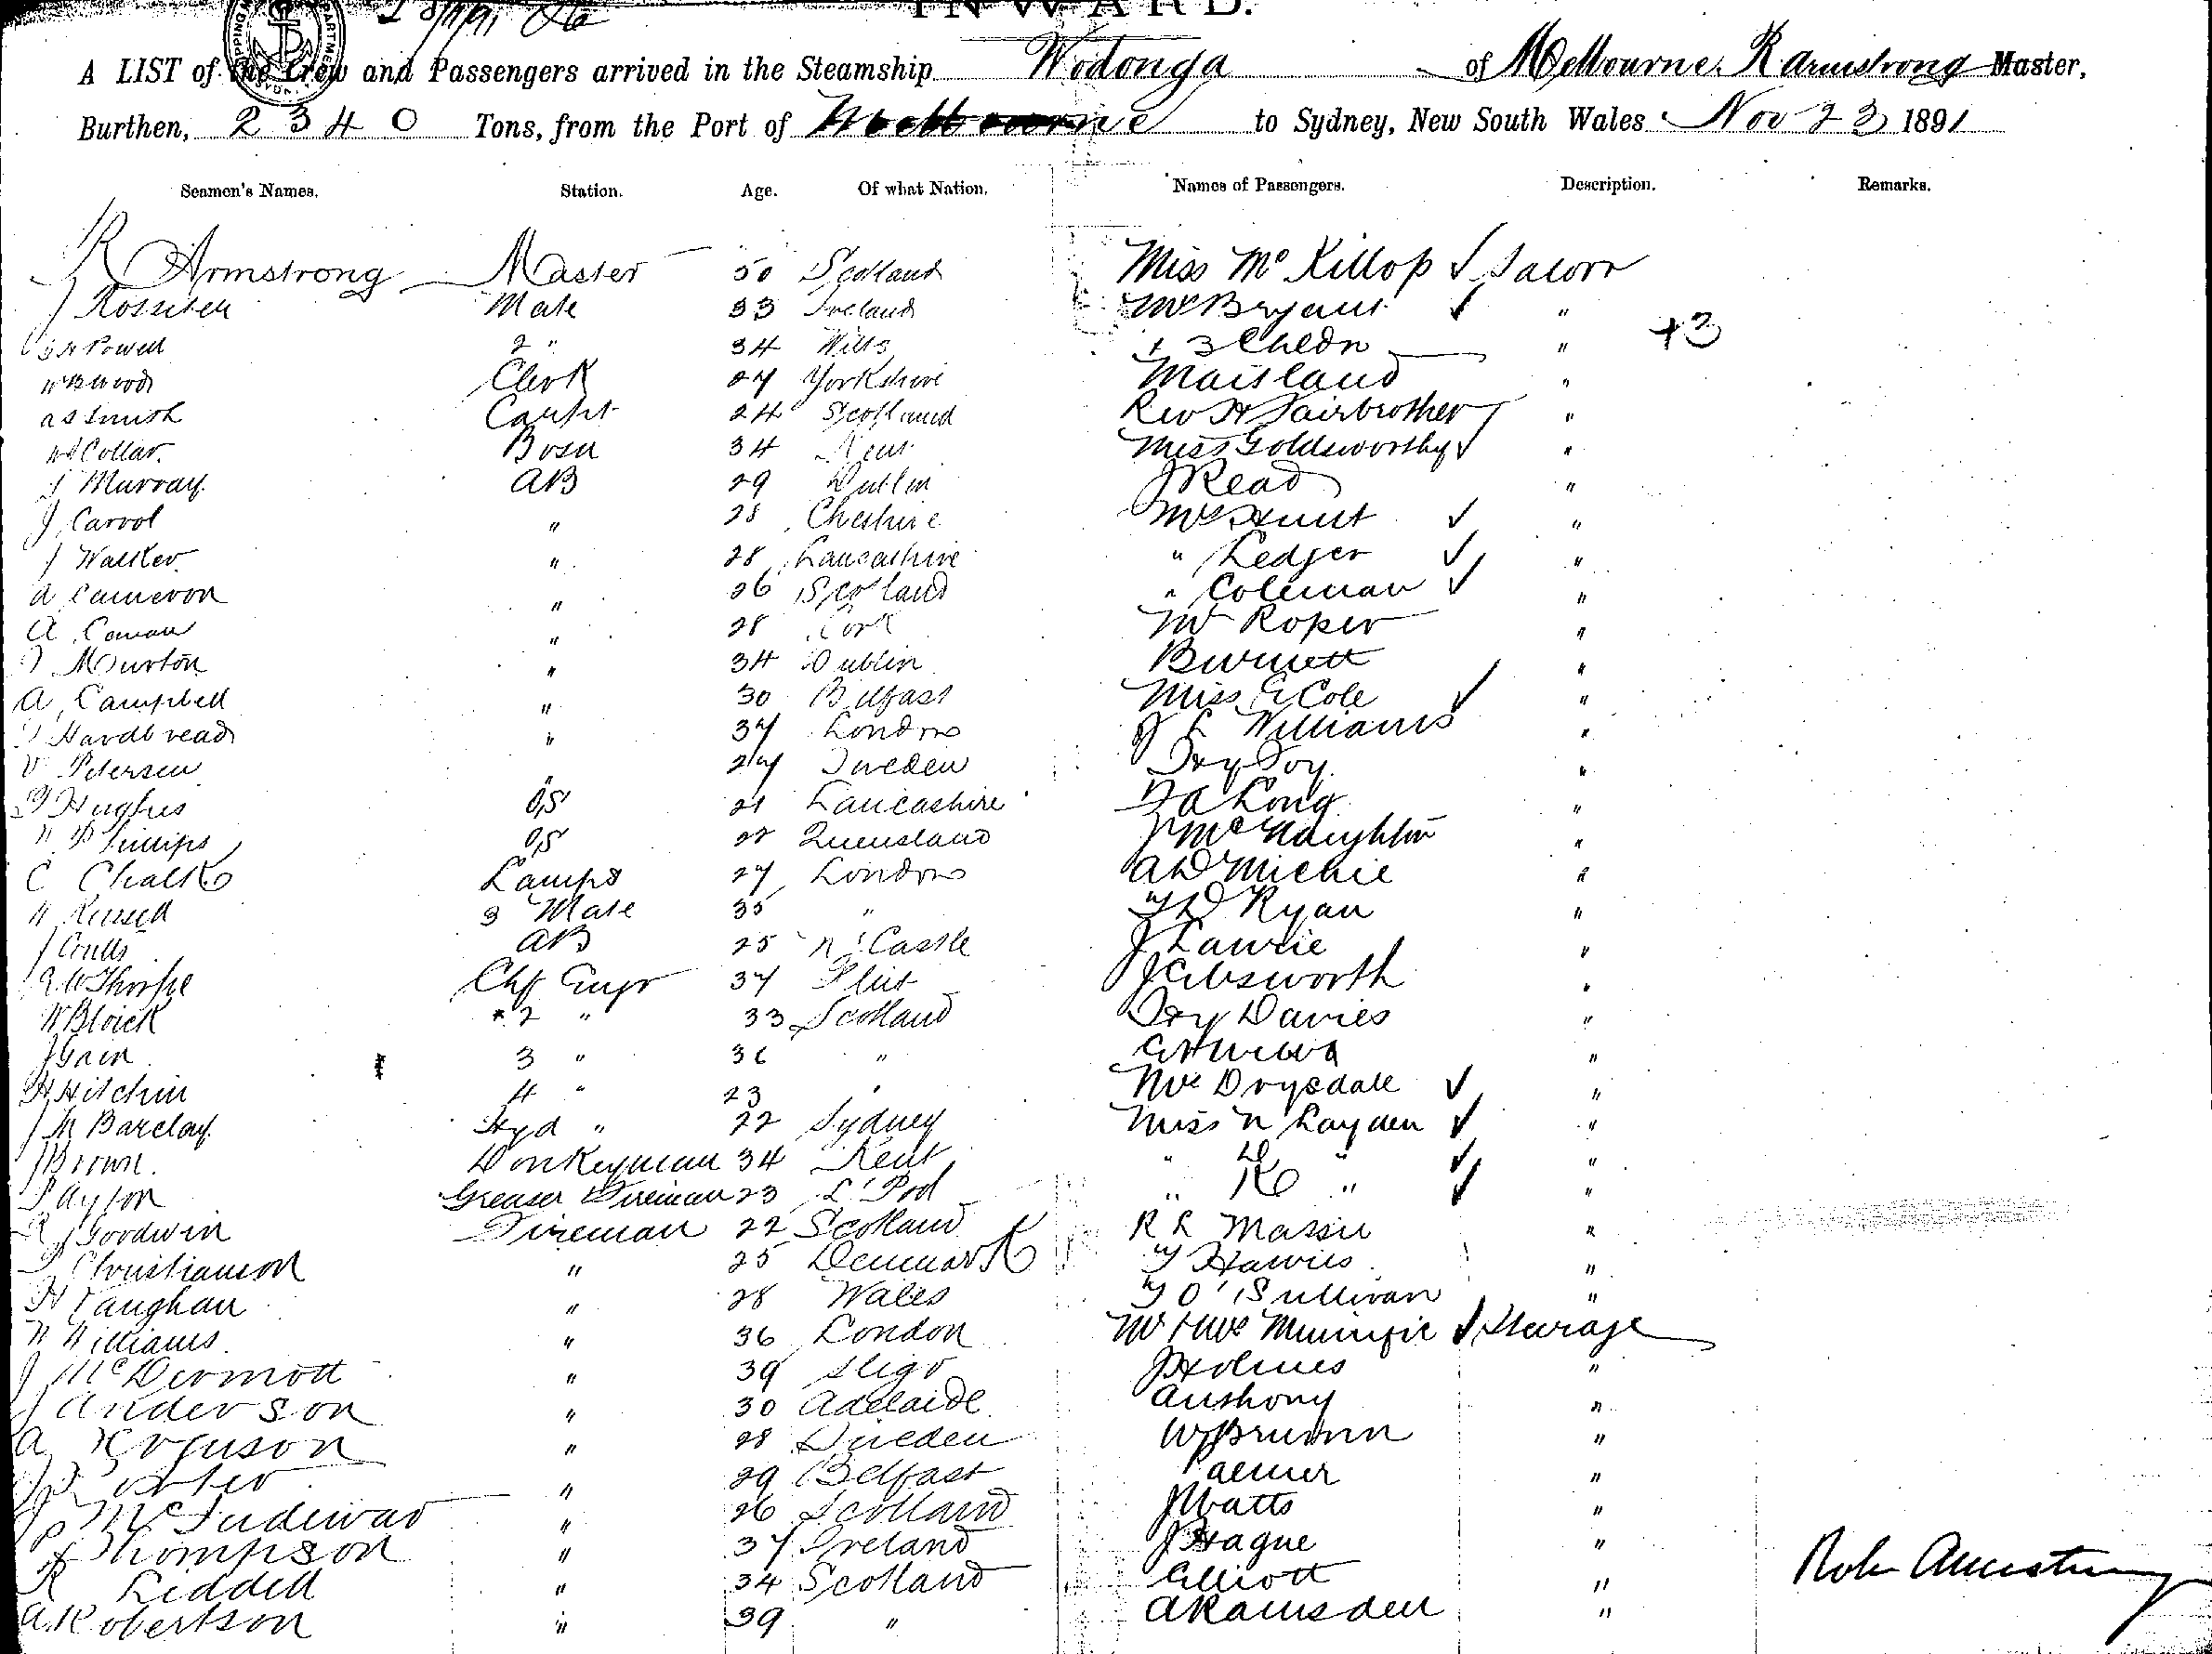 INWARD.
A LIST of the Crew and Passengers arrived in the Steamship Wodonga of Melbourne, R Armstrong Master,
Burthen, 2340 Tons, from the Port of Melbourne to Sydney, New South Wales Nov 23 1891
Seamen's Names. Station. Age. Of what Nation. Names of Passengers. Description. Remarks.
R Armstrong Master 50 Scotland Miss McKillop ✓ Saloon
J Rossiter Mate 33 Ireland Mrs Bryant ✓ "
Powell 2 " 34 Wilts + 3 Chldn " +3
W B Wood Clerk 27 Yorkshire Maitland "
A S Smith Carpt 24 Scotland Rev H Fairbrother "
Collar Bosn 34 Kent Miss Goldsworthy ✓ "
J Murray AB 29 Dublin J Read "
J Carrol " 28 Cheshire Mrs Hunt ✓ "
J Walker " 28 Lancashire " Ledger ✓ "
A Cameron " 26 Scotland " Coleman ✓ "
A Cowan " 28 Cork Mr Roper "
Murton " 34 Dublin Burnett "
A Campbell " 30 Belfast Miss E Cole ✓ "
Hardbread " 37 London J L Williams "
V Petersen " 27 Sweden Foy "
Hughes OS 21 Lancashire Long "
Phillips OS 22 Queensland J McNaughton "
C Chalk Lamps 27 London A D Michie "
Russell 3 Mate 35 " T D Ryan "
J Coulls AB 25 N'Castle J Lawrie "
Thorpe Chf Engr 37 Flint J Ebsworth "
W Bloick 2 " 33 Scotland Davies "
J Gain 3 " 36 " "
H Hitchin 4 " 23 " Mrs Drysdale ✓ "
J M Barclay Hyd " 22 Sydney Miss N Layden ✓ "
J Brown Donkeyman 34 Kent " D " ✓ "
Paylor Greaser Fireman 23 L'Pool " K " ✓ "
J Goodwin Fireman 22 Scotland R R Massie "
Christianson " 25 Denmark T Hawies "
H Vaughan " 28 Wales T O'Sullivan "
W Williams " 36 London Mr & Mrs ✓ Steerage
J McDermott " 39 Sligo J Holmes "
J Anderson " 30 Adelaide Anthony "
A Ferguson " 28 Sweden W Brunnn "
J Porter " 29 Belfast Palmer "
J McIndewar " 26 Scotland J Watts "
P Thompson " 37 Ireland J Hague "
R Liddell " 34 Scotland Elliott "
A Robertson " 39 " A Ramsden "
Robt Armstrong